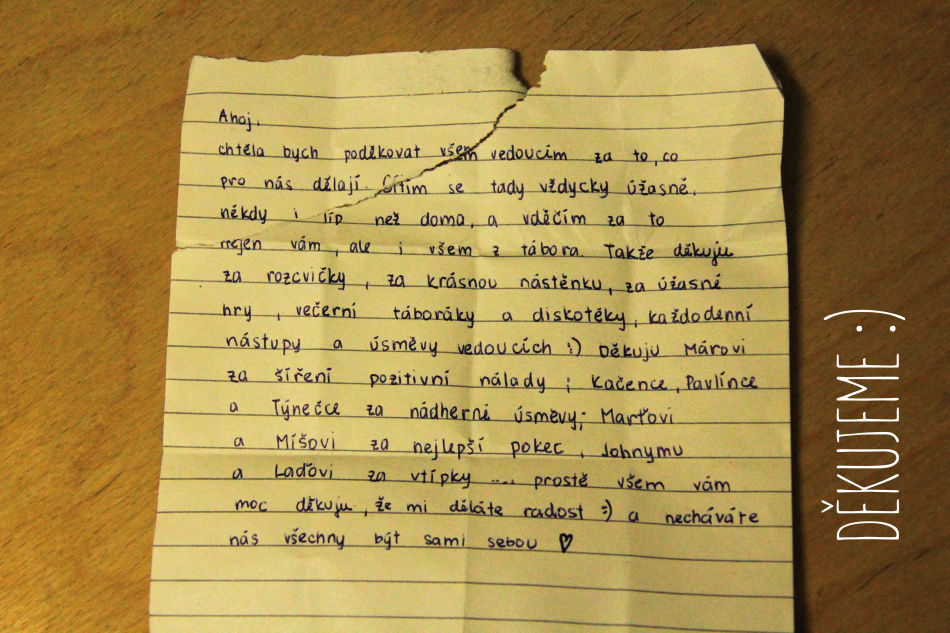 Ahoj,
chtěla bych poděkovat všem vedoucím za to, co
pro nás dělají. Cítím se tady vždycky úžasně,
někdy i líp než doma, a vděčím za to
nejen vám, ale i všem z tábora. Takže děkuju
za rozcvičky, za krásnou nástěnku, za úžasné
hry, večerní táboráky a diskotéky, každodenní
nástupy a úsměvy vedoucích :) Děkuju Márovi
za šíření pozitivní nálady; Kačence, Pavlínce
a Týnečce za nádherné úsměvy; Marťovi
a Míšovi za nejlepší pokec, Johnymu
a Laďovi za vtípky .... prostě všem vám
moc děkuju, že mi děláte radost :) a necháváte
nás všechny být sami sebou ♡
DĚKUJEME :)